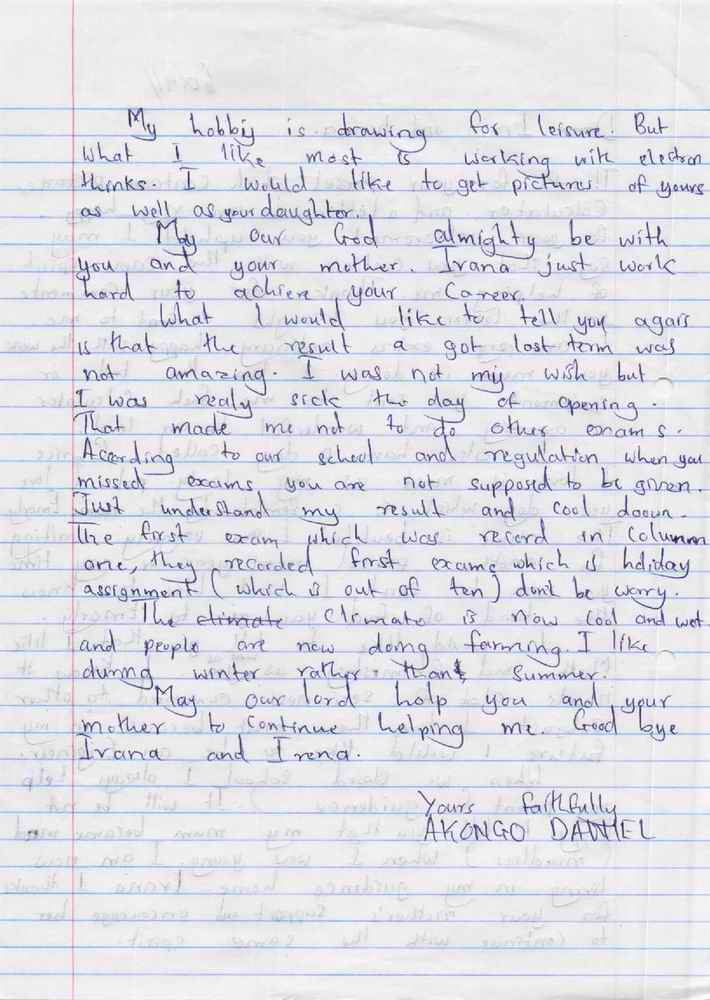 My hobby is drawing for leisure. But
what I like most is working with electron
thinks. I would like to get pictures of yours
as well as your daughter.
May our God almighty be with
you and your mother. Irana just work
hard to achieve your Career.
What I would like to tell you again
is that the result a got last term was
not amazing. I was not my wish but
I was realy sick the day of opening.
That made me not to do other exams.
According to our school and regulation when you
missed exams you are not supposed to be given.
Just understand my result and cool down.
The first exam which was record in Column
one, they recorded first exams which is holiday
assignment (which is out of ten) don't be worry.
The climate Climate is now cool and wet
and people are now doing farming. I like
during winter rather than Summer.
May our lord help you and your
mother to continue helping me. Good bye
Irana and Irena.
Yours faithfully
AKONGO DANIEL